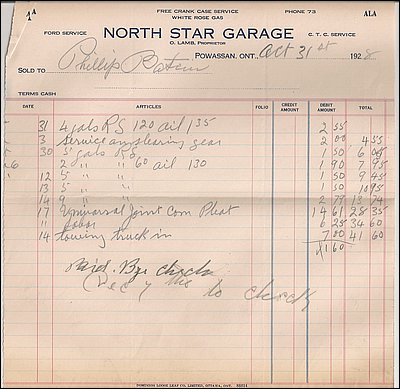 1A
FREE CRANK CASE SERVICE
WHITE ROSE GAS
PHONE 73
ALA
FORD SERVICE
NORTH STAR GARAGE
C. T. C. SERVICE
O. LAMB, PROPRIETOR
POWASSAN, ONT. Oct 31 st 1928
SOLD TO Phillip
TERMS CASH
DATE ARTICLES FOLIO CREDIT AMOUNT DEBIT AMOUNT TOTAL
31 4 gals R S 120 oil 1 35 2 55
3 Service on stearing gear 2 00 4 55
30 5 gals R S 1 50 6 05
26 2 " " 60 oil 130 1 90 7 95
12 5 " " 1 50 9 45
13 5 " " 1 50 10 95
14 9 " " 2 79 13 74
17 Universal Joint Com Pleat 14 61 28 35
" Labor 6 25 34 60
14 towing truck in 7 00 41 60
41 60
Paid. By check
Dec 7 th
DOMINION LOOSE LEAF CO. LIMITED, OTTAWA, ONT.